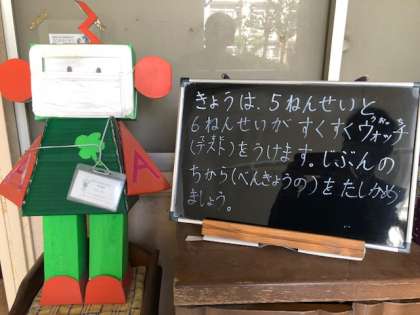 きょうは、5ねんせいと
6ねんせいがすくすくヴォッチ
(テスト)をうけます。じぶんの
ちから(べんきょうの)をたしかめ
ましょう。